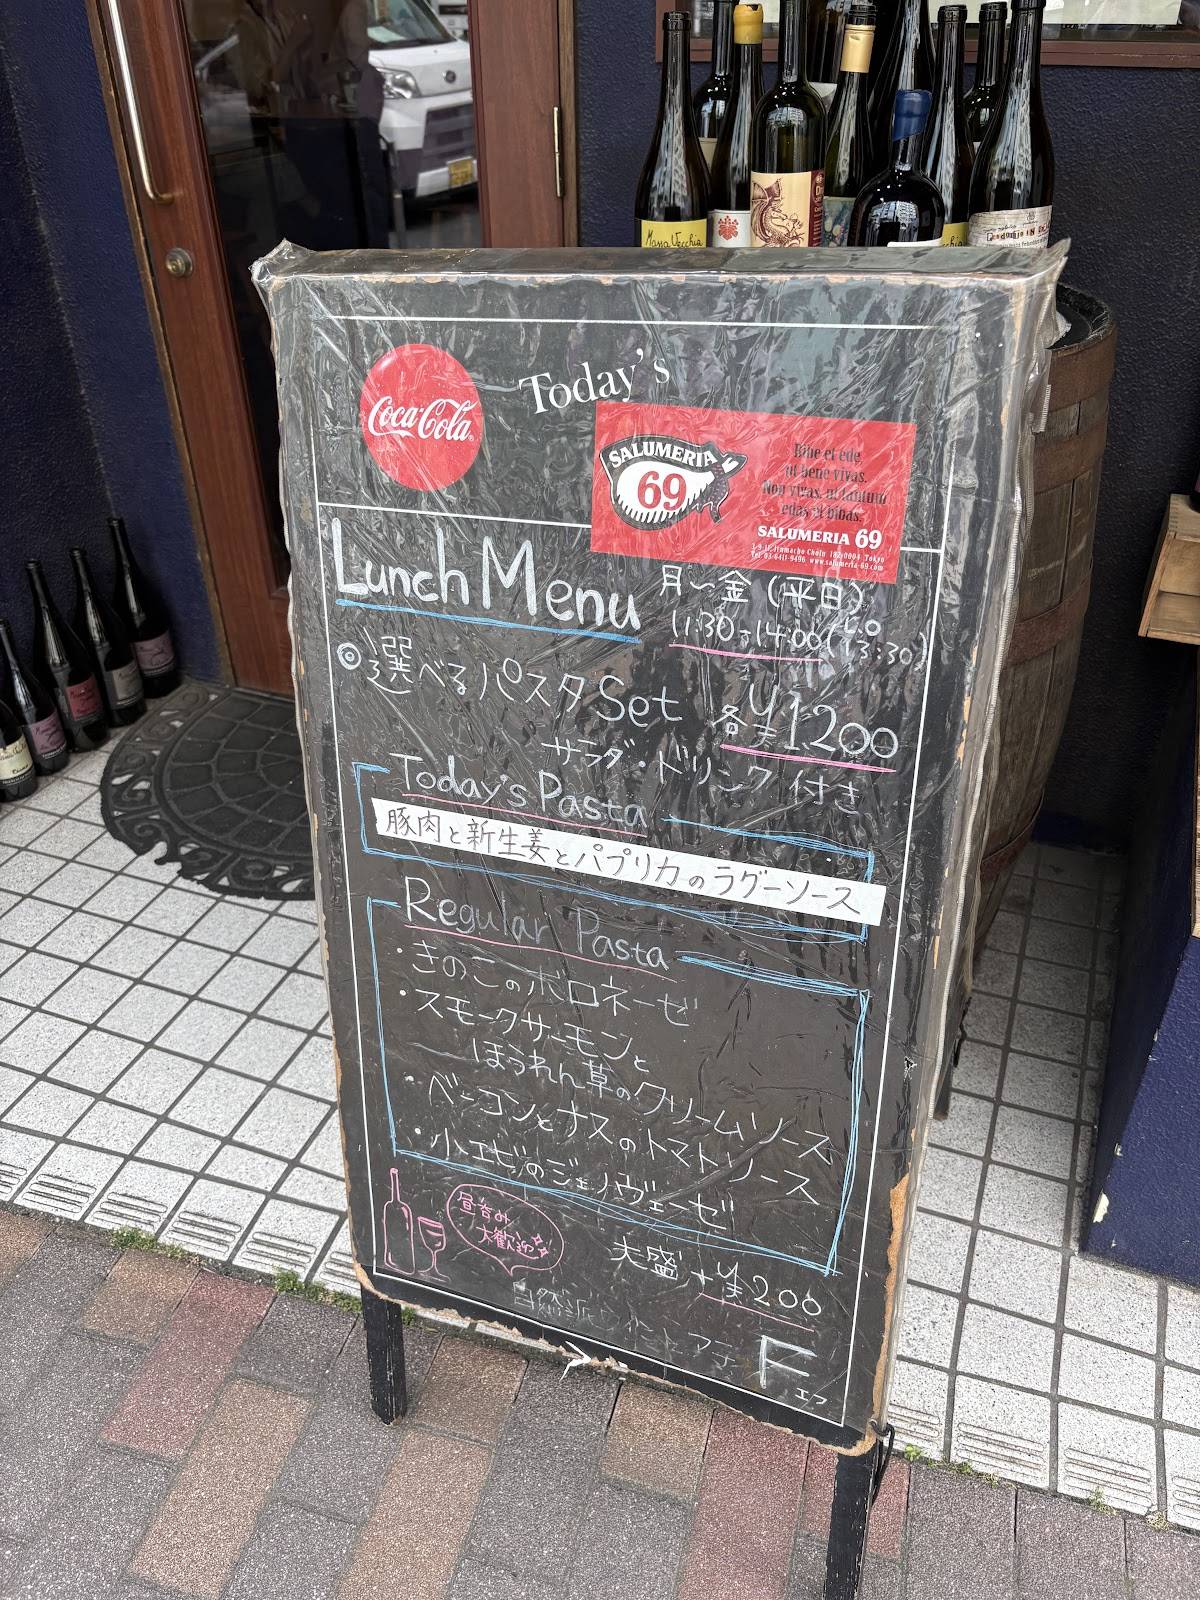 Massa Vecchia
Today's
Coca-Cola
SALUMERIA
69
Bibe et ede,
ut bene vivas.
Non vivas, ut tantum
edas et bibas.
SALUMERIA 69
Tel. 03-6411-9496 www.salumeria-69.com
Lunch Menu
月〜金(平日)
11:30-14:00(L.O 13:30)
◎選べるパスタSet 各¥1,200
サラダ・ドリンク付き
Today's Pasta
豚肉と新生姜とパプリカのラグーソース
Regular Pasta
・きのこのボロネーゼ
・スモークサーモンと
ほうれん草のクリームソース
・ベーコンとナスのトマトソース
・小エビのジェノヴェーゼ
昼呑み
大歓迎
大盛 +¥200
自然派
F
エフ